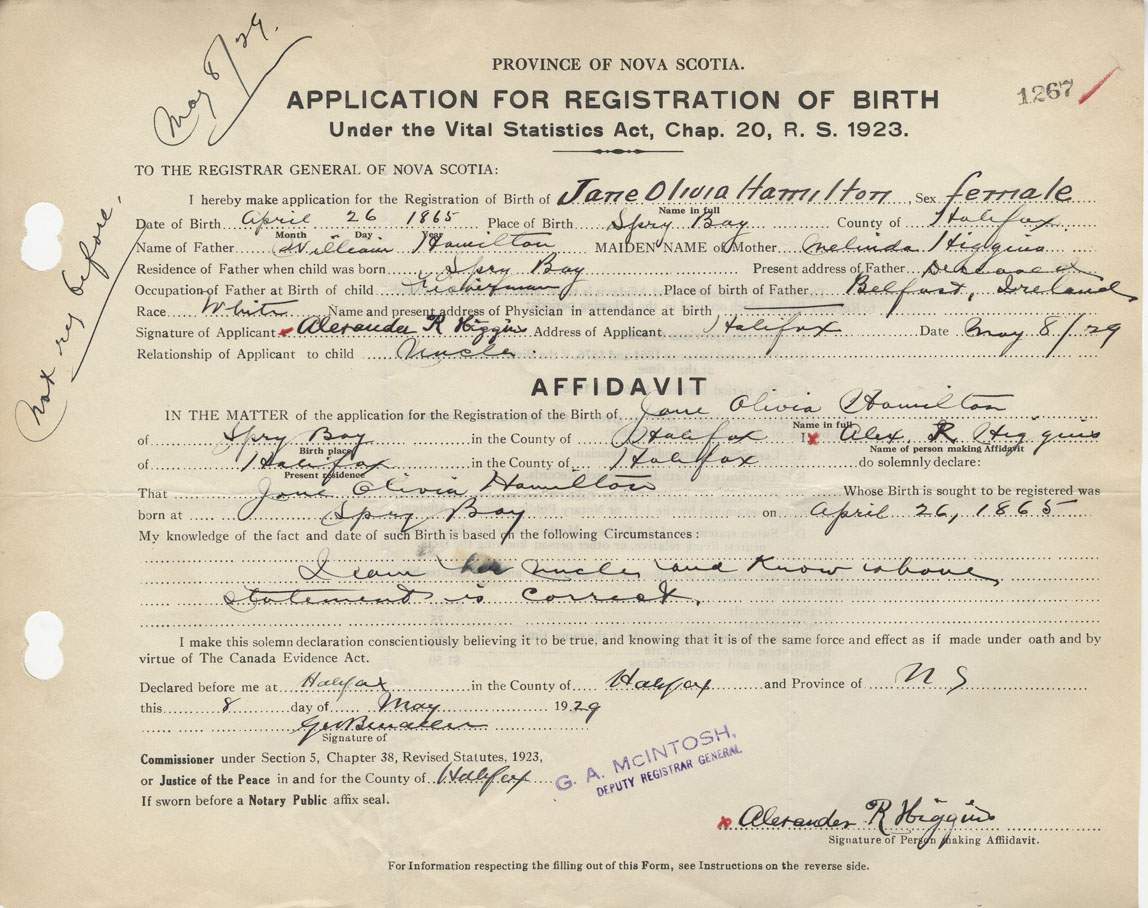 May 8/29.
Not reg before.
PROVINCE OF NOVA SCOTIA.
1267
APPLICATION FOR REGISTRATION OF BIRTH
Under the Vital Statistics Act, Chap. 20, R. S. 1923.
TO THE REGISTRAR GENERAL OF NOVA SCOTIA:
I hereby make application for the Registration of Birth of Jane Olivia Hamilton, Sex female
Name in full
Date of Birth April 26 1865 Place of Birth Spry Bay County of Halifax
Month Day Year
Name of Father William Hamilton MAIDEN NAME of Mother Melinda Higgins
Residence of Father when child was born Spry Bay Present address of Father Deceased
Occupation of Father at Birth of child Fisherman Place of birth of Father Belfast, Ireland
Race White Name and present address of Physician in attendance at birth
Signature of Applicant x Alexander R Higgins Address of Applicant Halifax Date May 8/29
Relationship of Applicant to child Uncle.
AFFIDAVIT
IN THE MATTER of the application for the Registration of the Birth of Jane Olivia Hamilton
Name in full
of Spry Bay in the County of Halifax I x Alex. R Higgins
Birth place Name of person making Affidavit
of Halifax in the County of Halifax do solemnly declare:
Present residence
That Jane Olivia Hamilton Whose Birth is sought to be registered was
born at Spry Bay on April 26, 1865
My knowledge of the fact and date of such Birth is based on the following Circumstances:
I am her uncle and know above
statement is correct.
I make this solemn declaration conscientiously believing it to be true, and knowing that it is of the same force and effect as if made under oath and by
virtue of The Canada Evidence Act.
Declared before me at Halifax in the County of Halifax and Province of N S
this 8 day of May 1929
Signature of
Commissioner under Section 5, Chapter 38, Revised Statutes, 1923,
or Justice of the Peace in and for the County of Halifax
If sworn before a Notary Public affix seal.
G. A. McINTOSH,
DEPUTY REGISTRAR GENERAL
x Alexander R Higgins
Signature of Person making Affidavit.
For Information respecting the filling out of this Form, see Instructions on the reverse side.